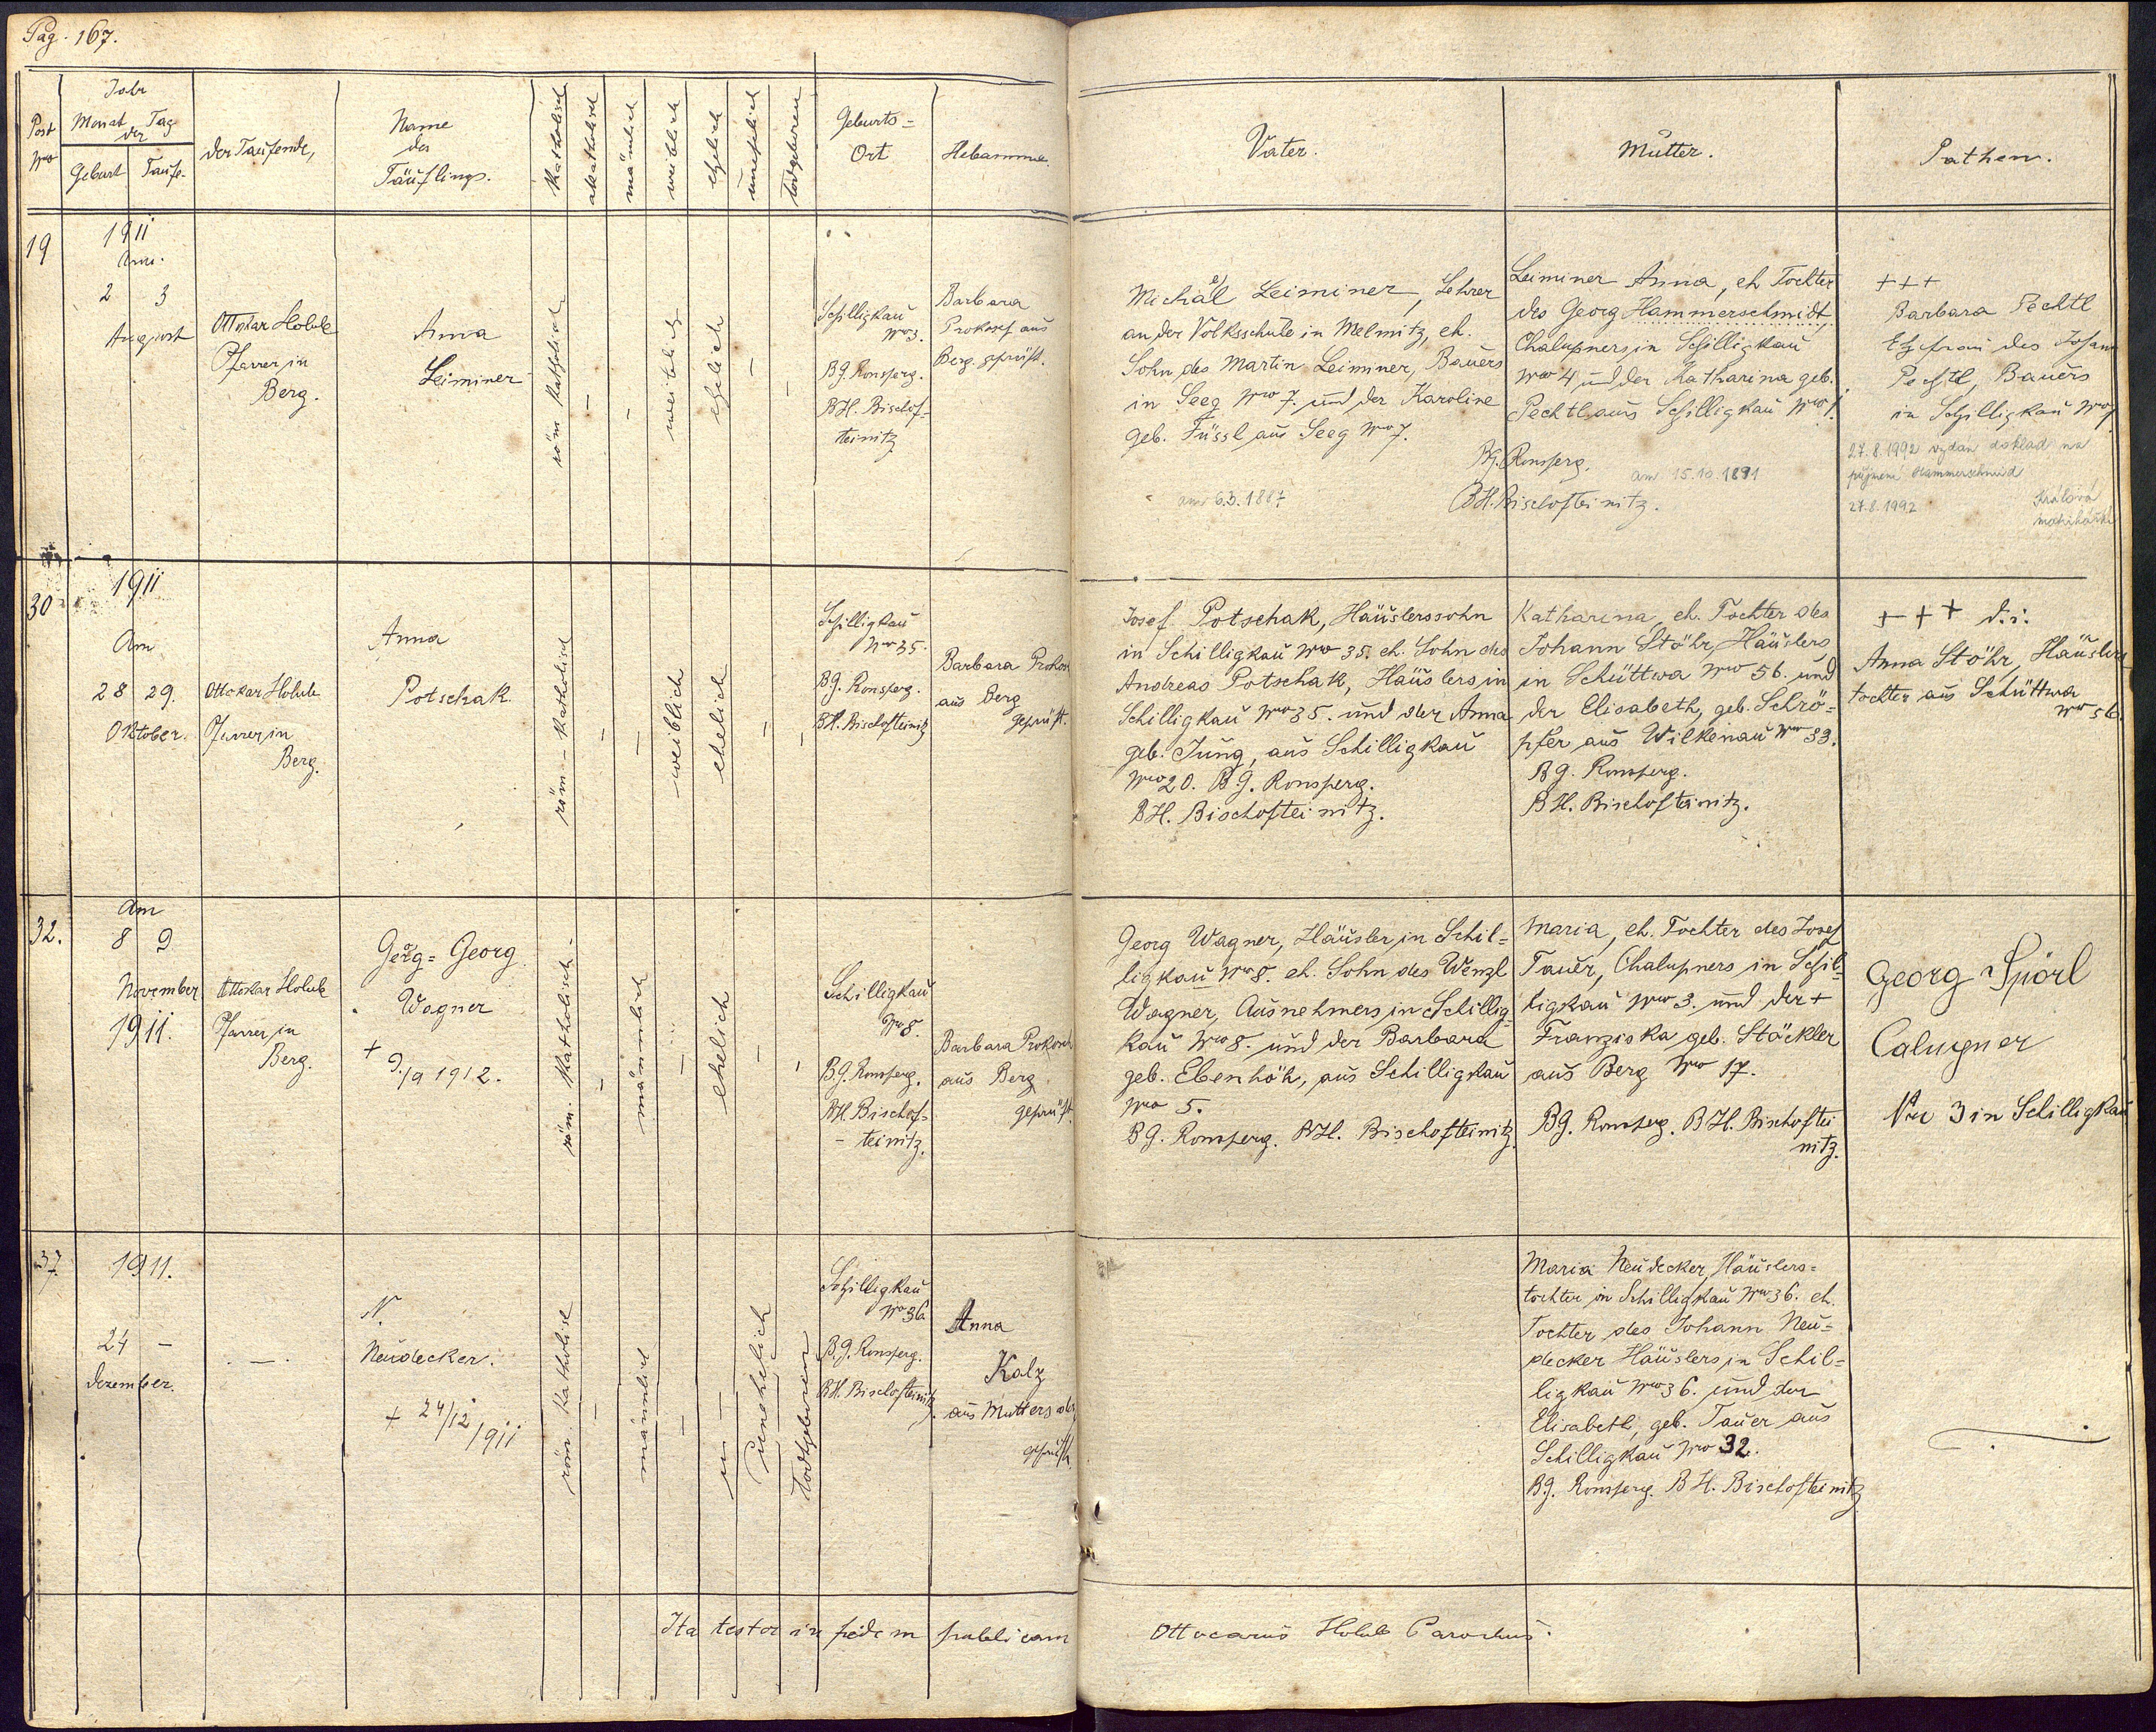 Pag. 167.
Post Nro
Jahr
Monat Tag
der
Geburt Taufe.
der Taufende,
Name
des
Täuflings.
Katholisch
akatholisch
mänlich
weiblich
ehelich
unehelich
todgeboren
Geburts=
Ort
Hebamme.
Vater.
Mutter.
Pathen.
19
1911
Am
2 3
August
Ottokar Holub
Pfarrer in
Berg.
Anna
Leiminer
röm katholisch
–
–
weiblich
ehelich
–
–
Schilligkau
Nro 3.
BG. Ronsperg.
BH. Bischof-
teinitz
Barbara
Prokosch aus
Berg. geprüft.
Michael Leiminer, Lehrer
an der Volksschule in Melmitz, eh.
Sohn des Martin Leiminer, Bauers
in Seeg Nro 7. und der Karoline
geb. Füssl aus Seeg Nro 7.
BG. Ronsperg.
BH. Bischofteinitz.
am 6.3.1887
Leiminer Anna, eh Tochter
des Georg Hammerschmidt,
Chalupners in Schilligkau
Nro 4 und der Katharina geb.
Pechtl aus Schilligkau Nro 1.
am 15.10.1891
+++
Barbara Pechtl
Ehefrau des Johann
Pechtl, Bauers
in Schilligkau Nro 1
27.8.1992 vydán doklad na
příjmení Hammerschmid
27.8.1992 Králová
matrikářka
30
1911
Am
28 29.
Oktober.
Ottokar Holub
Pfarrer in
Berg.
Anna
Potschak.
röm – katholisch
–
–
weiblich
ehelich
–
–
Schilligkau
Nro 35.
BG. Ronsperg.
BH. Bischofteinitz
Barbara Prokosch
aus Berg
geprüft.
Josef Potschak, Häuslerssohn
in Schilligkau Nro 35. eh. Sohn des
Andreas Potschak, Häuslers in
Schilligkau Nro 35. und der Anna
geb. Jung, aus Schilligkau
Nro 20. BG. Ronsperg.
BH. Bischofteinitz.
Katharina, eh. Tochter des
Johann Stöhr, Häuslers
in Schüttwa Nro 56. und
der Elisabeth, geb. Schrö=
pfer aus Wilkenau Nro 33.
BG. Ronsperg.
BH. Bischofteinitz.
+++ d.i.
Anna Stöhr, Häuslers
tochter aus Schüttwa
Nro 56.
32.
Am
8 9
November
1911.
Ottokar Holub
Pfarrer in
Berg.
Georg = Georg
Wagner
+ 9./9 1912.
röm. katholisch.
–
männlich
–
ehelich
–
–
Schilligkau
Nro 8.
BG. Ronsperg.
BH. Bischof=
- teinitz.
Barbara Prokosch
aus Berg
geprüft.
Georg Wagner, Häusler in Schil=
ligkau Nro 8. eh. Sohn des Wenzl
Wagner, Ausnehmers in Schillig=
kau Nro 8. und der Barbara
geb. Ebenhöh, aus Schilligkau
Nro 5.
BG. Ronsperg. BH. Bischofteinitz.
Maria, eh. Tochter des Josef
Tauer, Chalupners in Schil=
ligkau Nro 3. und der +
Franziska geb. Stöckler
aus Berg Nro 17.
BG. Ronsperg. BH. Bischoftei
nitz.
Georg Spörl
Calupner
Nro 3 in Schilligkau
37.
1911.
24 –
Dezember.
. — .
N.
Neudecker.
+ 24/12 1911
röm. katholisch
–
männlich
–
un –
unehelich
todtgeboren
Schilligkau
Nro 36
BG. Ronsperg.
BH. Bischofteinitz.
Anna
Kalz
aus Muttersdf
geprüft.
Maria Neudecker, Häuslers=
tochter in Schilligkau Nro 36. eh.
Tochter des Johann Neu=
decker Häuslers in Schil=
ligkau Nro 36. und der
Elisabeth, geb. Tauer aus
Schilligkau Nro 32.
BG. Ronsperg. BH. Bischofteinitz
Ita testor in fidem publicam
Ottocarus Holub Parochus.